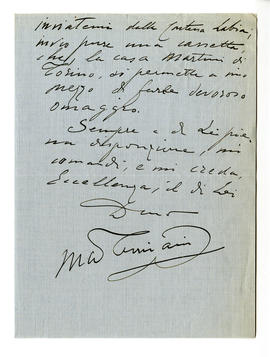 inviatemi dalla Contessa Labia,
invio pure una cassetta
che, la casa Martini di
Torino, si permette a mio
mezzo di farle devoroso
omaggio.
Sempre a di Lei pie-
na disposizione, mi
comandi, e mi creda,
Eccellenza, il di Lei